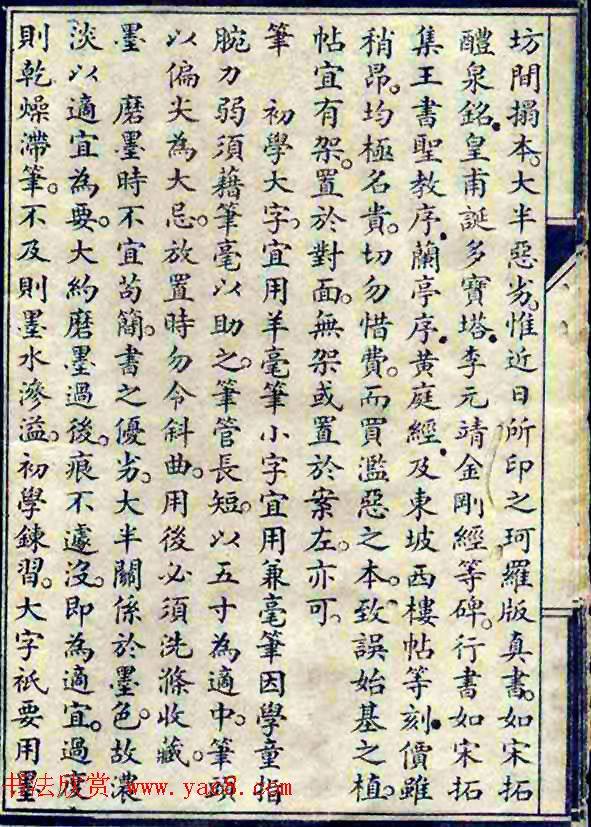 坊間搨本。大半惡劣。惟近日所印之珂羅版真書。如宋拓
醴泉銘。皇甫誕多寶塔。李元靖金剛經。等碑。行書如宋拓
集王書聖教序。蘭亭序。黃庭經。及東坡西樓帖等刻。價雖
稍昂。均極名貴。切勿惜費。而買濫惡之本。致誤始基之植。
帖宜有架。置於對面。無架或置於案左。亦可。
筆　初學大字。宜用羊毫筆小字宜用兼毫筆因學童指
腕力弱須藉筆毫以助之。筆管長短。以五寸為適中。筆頭
以偏尖為大忌。放置時勿令斜曲。用後必須洗滌收藏。
墨　磨墨時不宜苟簡。書之優劣。大半關係於墨色。故濃
淡以適宜為要。大約磨墨過後。痕不遽沒。即為適宜。過度
則乾燥滯筆。不及則墨水滲溢。初學鍊習。大字祇要用墨
书法欣赏 www.yac8.com